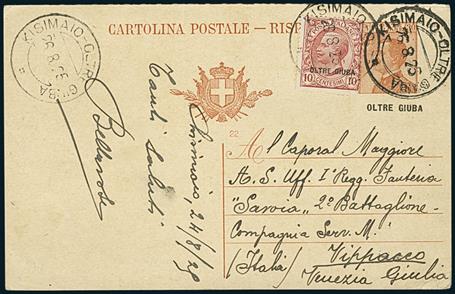 CARTOLINA POSTALE - RISP
KISIMAIO - OLTRE GIUBA
26.8.25
KISIMAIO
8.25
KISIMAIO - OLTRE GIUBA
8.25
10 CENTESIMI 10
OLTRE GIUBA
OLTRE GIUBA
22
Al Caporal Maggiore
A. S. Uff. I° Regg. Fanteria
"Savoia" 2° Battaglione -
Compagnia Serv. M."
Vippacco
(Italia) Venezia Giulia
Chisimaio, 24/8/25
Tanti saluti